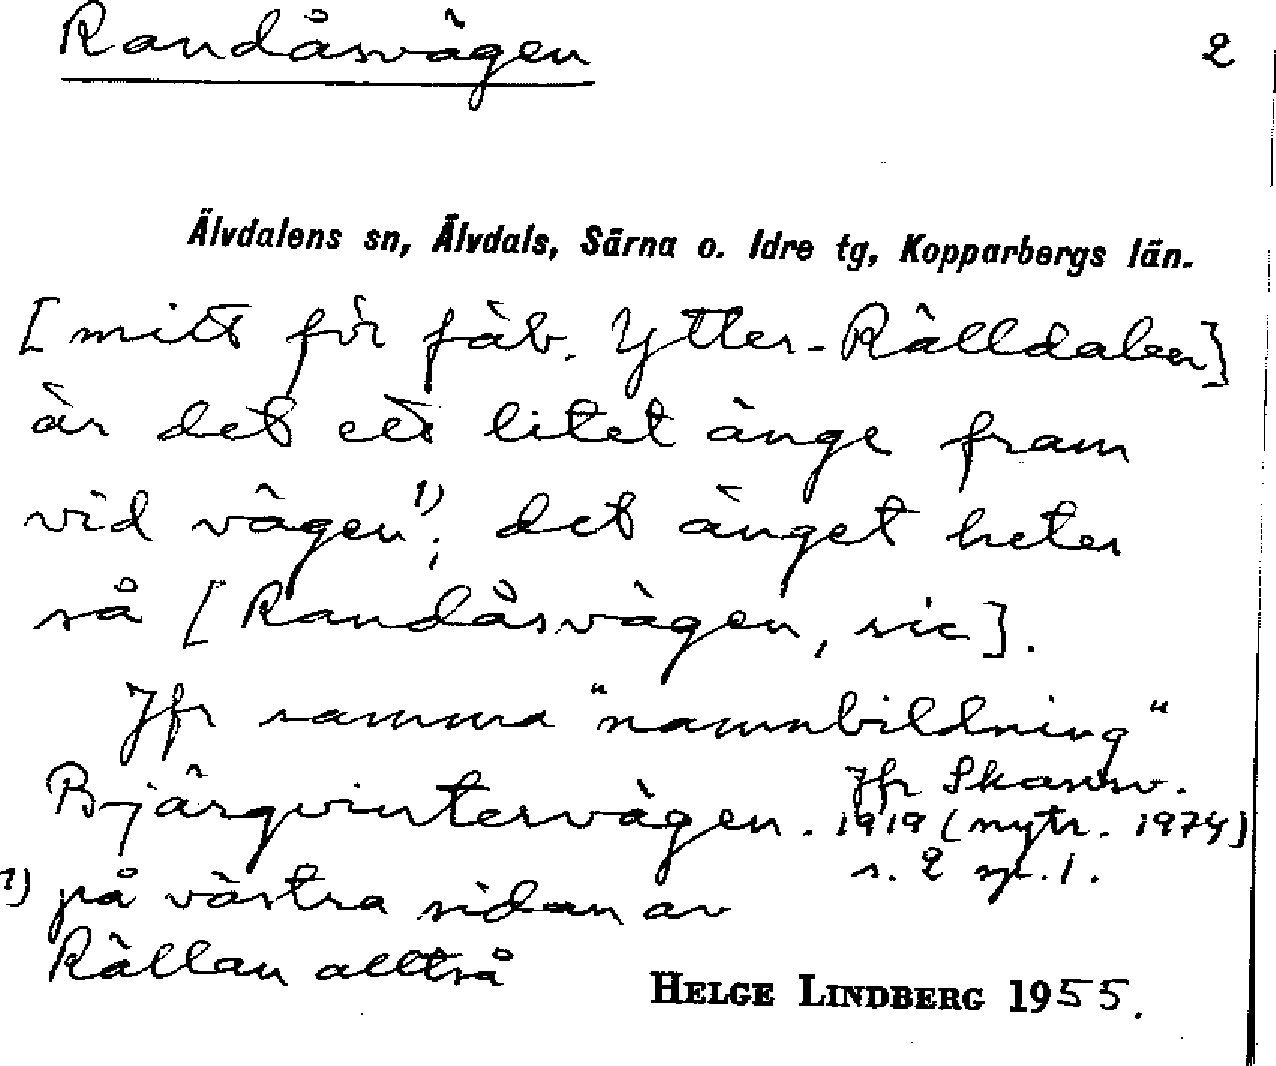 Randåsvägen 2
Älvdalens sn, Älvdals, Särna o. Idre tg, Kopparbergs län.
[mitt för fäb. Ytter-Rälldalen]
är det ett litet änge fram
vid vägen¹⁾; det änget heter
så [Randåsvägen, sic].
Jfr samma "namnbildning"
Bjärgvintervägen. Jfr Skansv.
1919 (nytr. 1974)
s. 2 sp. 1.
¹⁾ på västra sidan av
Rällan alltså
HELGE LINDBERG 1955.